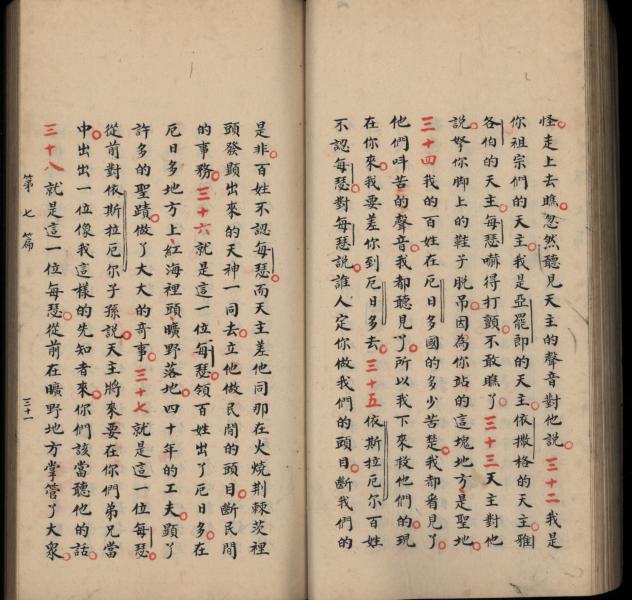 怪走上去瞧忽然聽見天主的聲音對他說三十二我是
你祖宗們的天主我是亞罷郎的天主依撒格的天主雅
各伯的天主每瑟嚇得打顫不敢瞧了三十三天主對他
說拏你脚上的鞋子脫吊因為你站的這塊地方是聖地
三十四我的百姓在厄日多國的多少苦楚我都看見了
他們呌苦的聲音我都聽見了所以我下來救他們的現
在你來我要差你到厄日多去三十五依斯拉厄尔百姓
不認每瑟對每瑟說誰人定你做我們的頭目斷我們的
是非百姓不認每瑟而天主差他同那在火燒荆棘茨裡
頭發顯出來的天神一同去立他做民間的頭目斷民間
的事務三十六就是這一位每瑟領百姓出了厄日多在
厄日多地方上紅海裡頭曠野落地四十年的工夫顯了
許多的聖蹟做了大大的奇事三十七就是這一位每瑟
從前對依斯拉厄尔子孫說天主將來要在你們弟兄當
中出出一位像我這樣的先知者來你們該當聽他的話
三十八就是這一位每瑟從前在曠野地方掌管了大衆
第七篇
三十一